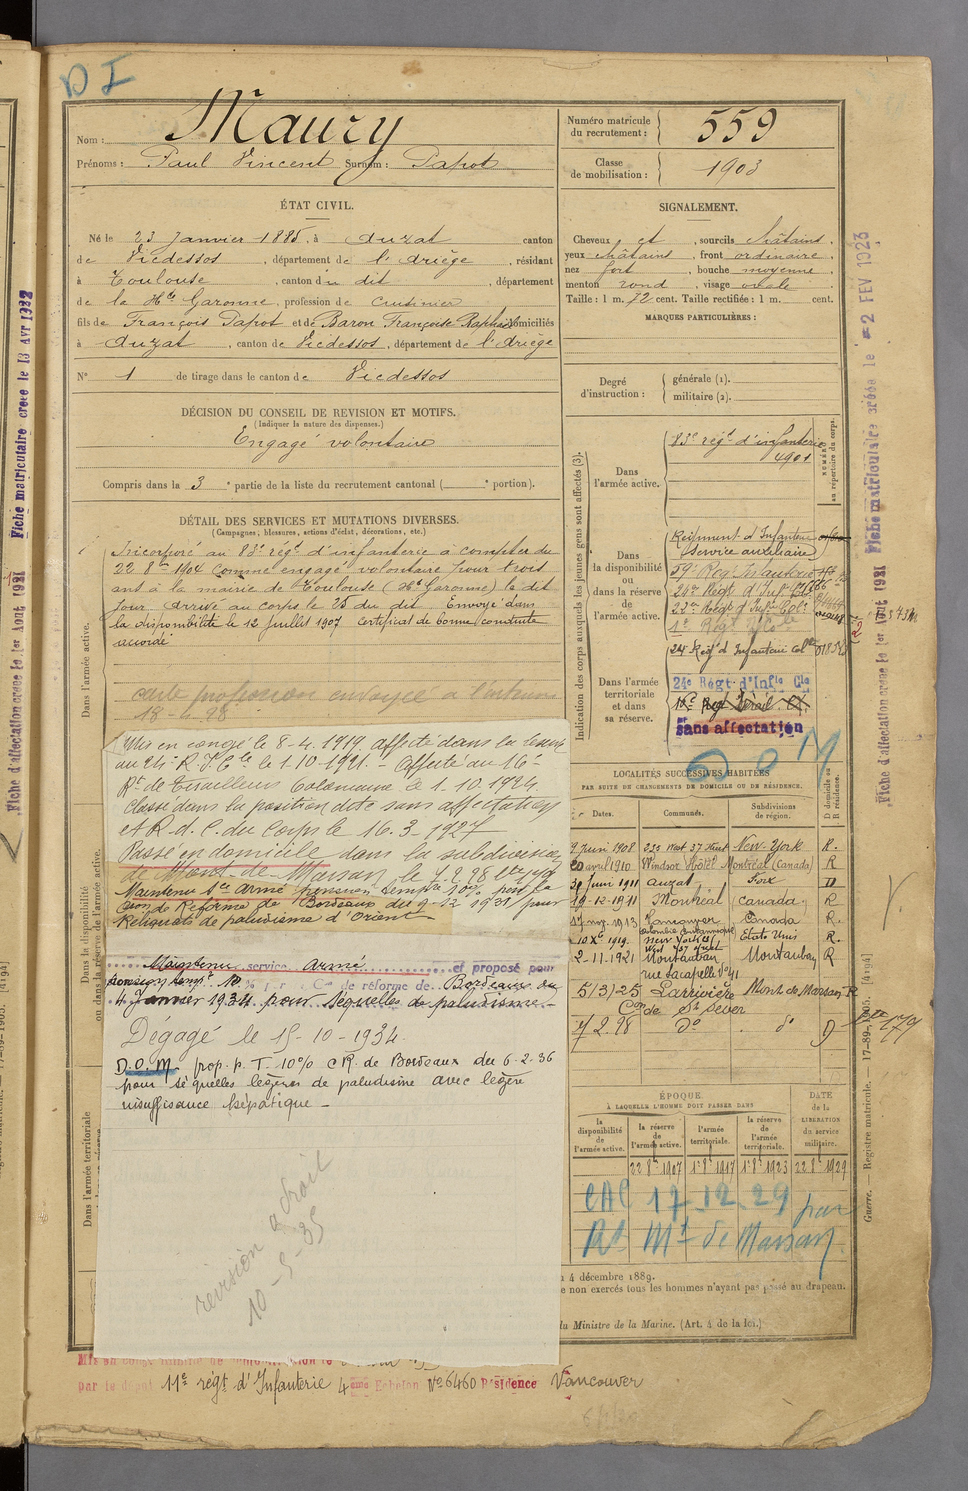 D I
Nom : Maury
Prénoms : Paul Vincent Surnom : Papot
Numéro matricule du recrutement : 559
Classe de mobilisation : 1903
ÉTAT CIVIL.
Né le 23 Janvier 1885, à Auzat canton
de Vicdessos, département de l'Ariège, résidant
à Toulouse, canton du dit, département
de la Hte Garonne, profession de Cuisinier
fils de François Papot et de Baron Françoise Raphaël domiciliés
à Auzat, canton de Vicdessos, département de l'Ariège
N° 1 de tirage dans le canton de Vicdessos
SIGNALEMENT.
Cheveux et, sourcils châtains,
yeux châtains, front ordinaire,
nez fort, bouche moyenne,
menton rond, visage ovale.
Taille : 1 m. 72 cent. Taille rectifiée : 1 m. cent.
MARQUES PARTICULIÈRES :
Degré d'instruction : générale (1).
militaire (2).
DÉCISION DU CONSEIL DE REVISION ET MOTIFS.
(Indiquer la nature des dispenses.)
Engagé volontaire
Compris dans la 3e partie de la liste du recrutement cantonal ( e portion).
DÉTAIL DES SERVICES ET MUTATIONS DIVERSES.
(Campagnes, blessures, actions d'éclat, décorations, etc.)
Dans l'armée active.
Incorporé au 83e régt d'infanterie à compter du
22 8bre 1904 comme engagé volontaire pour trois
ans à la mairie de Toulouse (Hte Garonne) le dit
jour. Arrivé au corps le 23 du dit. Envoyé dans
la disponibilité le 12 Juillet 1907 Certificat de bonne conduite
accordé
carte profession envoyée à
18-4-28
Mis en congé le 8-4-1919. affecté dans la réserve
au 24e R.I.Cle le 1.10.1921. - Affecté au 16e
Rt de Tirailleurs Coloniaux le 1.10.1924.
Classé dans la position dite sans affectation
et R.d.C. du Corps le 16.3-1927
Passé en domicile dans la subdivision
de Mont-de-Marsan le 7.2.28
Maintenu Sce Armé pension tempre 10% par la
Con de Réforme de Bordeaux du 9-12-1931 pour
Reliquats de paludisme d'Orient
Maintenu service Armé et proposé pour
pension tempre 10 % par Cn de réforme de Bordeaux du
4 Janvier 1934 pour séquelles de paludisme.
Dégagé le 15-10-1934
D.O.M. prop. p. T. 10% CR. de Bordeaux du 6-2-36
pour séquelles légères de paludisme avec légère
insuffisance hépatique -
revision a droit
10-5-35
Dans la disponibilité ou dans la réserve de l'armée active.
Dans l'armée territoriale
Indication des corps auxquels les jeunes gens sont affectés (3).
NUMÉRO au répertoire du corps.
Dans l'armée active.
83e régt d'infanterie
4901
Dans la disponibilité ou dans la réserve de l'armée active.
Régiment d'Infanterie
(service auxiliaire)
59e Régt Infanterie
24e Régt d'Infie
22e Régt d'Infie Cole
24 Régt d'Infanterie Colle
Dans l'armée territoriale et dans sa réserve.
24e Régt d'Infie Cle
16e Régt Tirail. Cx.
sans affectation
D O M
LOCALITÉS SUCCESSIVES HABITÉES
PAR SUITE DE CHANGEMENTS DE DOMICILE OU DE RÉSIDENCE.
Dates. Communes. Subdivisions de région. D domicile ou R résidence.
9 Juin 1908 232 West 37 Street New-York R.
20 avril 1910 Windsor Hôtel Montréal (Canada) R
30 Juin 1911 Auzat Foix D
19-12-1911 Montréal (Canada) R.
17 nov. 1913 Vancouver Canada R.
Colombie Britannique
10 Xe 1919. New York Etats Unis R.
2-11-1921 Montauban Montauban R
rue Lacapelle No 41
5/3/25 Larrivière Mont de Marsan R
Con de St Sever
7 2. 28 Do do D
ÉPOQUE
À LAQUELLE L'HOMME DOIT PASSER DANS
DATE de la LIBÉRATION du service militaire.
la disponibilité de l'armée active.
la réserve de l'armée active.
l'armée territoriale.
la réserve de l'armée territoriale.
22 8bre 1907 1er 8bre 1917 1er 8bre 1923 22 8bre 1929
CAC 17-12-29 par
Rt Mt de Marsan
4 décembre 1889.
e non exercés tous les hommes n'ayant pas passé au drapeau.
la Ministre de la Marine. (Art. 4 de la loi.)
par le dépôt 11e régt d'Infanterie 4ème Echelon No 6460 Résidence Vancouver
Fiche matriculaire créée le 13 AVR 1922
Fiche d'affectation créée le 1er Août 1921
Fiche matriculaire créée le 2 FEV 1923
Fiche d'affectation créée le 1er Août 1921
Guerre. — Registre matricule. — 17-89-1905. [4194]